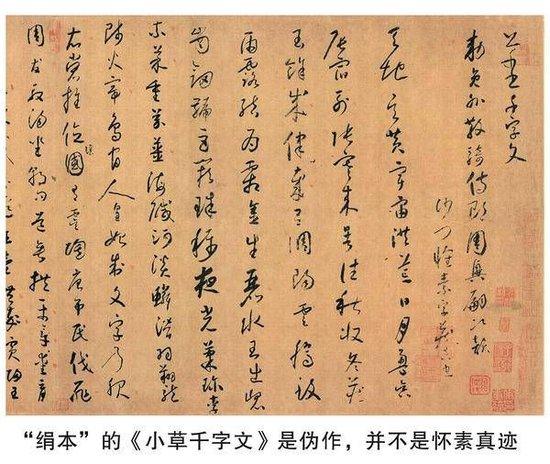 千字文
勅員外散騎侍郎周興嗣次韻
沙門懷素字藏真
天地玄黃宇宙洪荒日月盈昃
辰宿列張寒來暑往秋收冬藏
閏餘成歲律召調陽雲騰致
雨露結為霜金生麗水玉出崑
崗劍號巨闕珠稱夜光菓珍李
柰菜重芥薑海鹹河淡鱗潛羽翔龍
師火帝鳥官人皇始制文字乃服
衣裳推位讓國有虞陶唐弔民伐罪
周發殷湯坐朝問道垂拱平章愛育
“绢本”的《小草千字文》是伪作，并不是怀素真迹